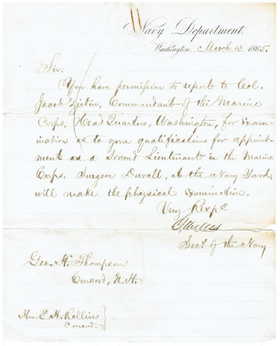 Navy Department.
Washington, March 13, 1865.
Sir.
You have permission to report to Col.
Jacob Zeilin, Commandant of the Marine
Corps, Head Quarters, Washington, for exam-
ination as to your qualifications for appoint-
ment as a Second Lieutenant in the Marine
Corps. Surgeon Duvall, at the Navy Yard,
will make the physical examination.
Very Resp'y
G Welles
Sec'y of the Navy
Geo. H. Thompson
Concord, N.H.
Hon E. H. Rollins
Concord.